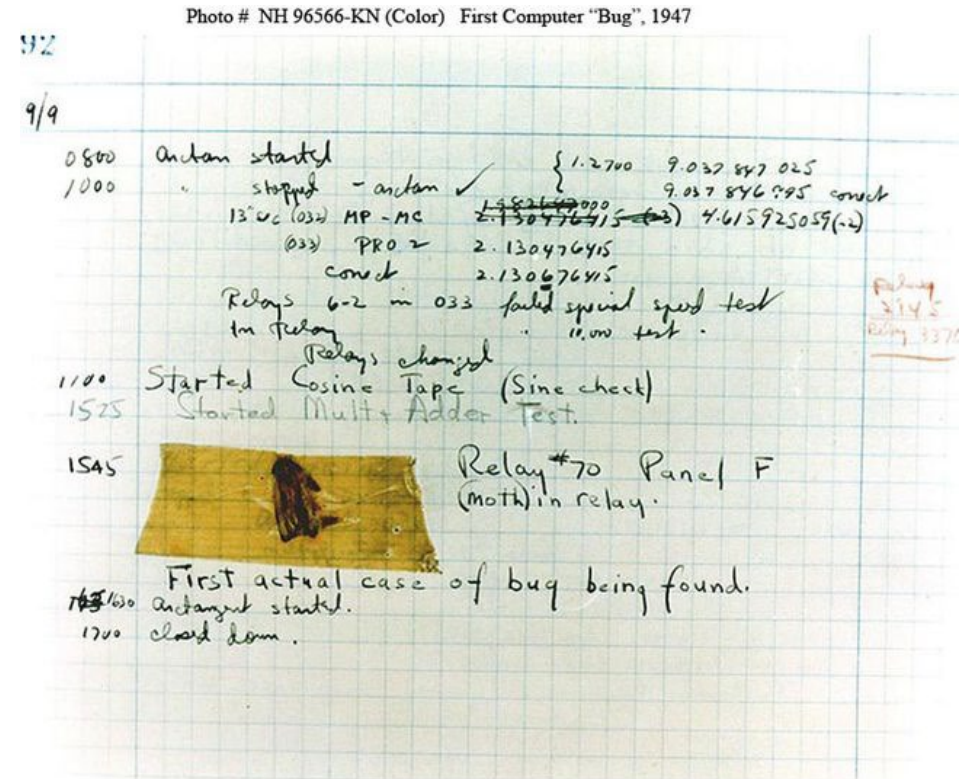 Photo # NH 96566-KN (Color) First Computer “Bug”, 1947
92
9/9
0800 Antan started { 1.2700 9.037 847 025
1000 " stopped - antan ✓ 9.037 846 995 conect
13"uc (032) MP - MC 2.130476415 (-3) 4.615925059(-2)
(033) PRO 2 2.130476415
conect 2.130676415
Relays 6-2 in 033 failed special speed test
In Relay " 10,000 test .
Relay
2145
Relay 3370
Relays changed
1100 Started Cosine Tape (Sine check)
1525 Started Mult+ Adder Test.
1545 Relay #70 Panel F
(moth) in relay.
First actual case of bug being found.
1630 antangent started.
1700 closed down.